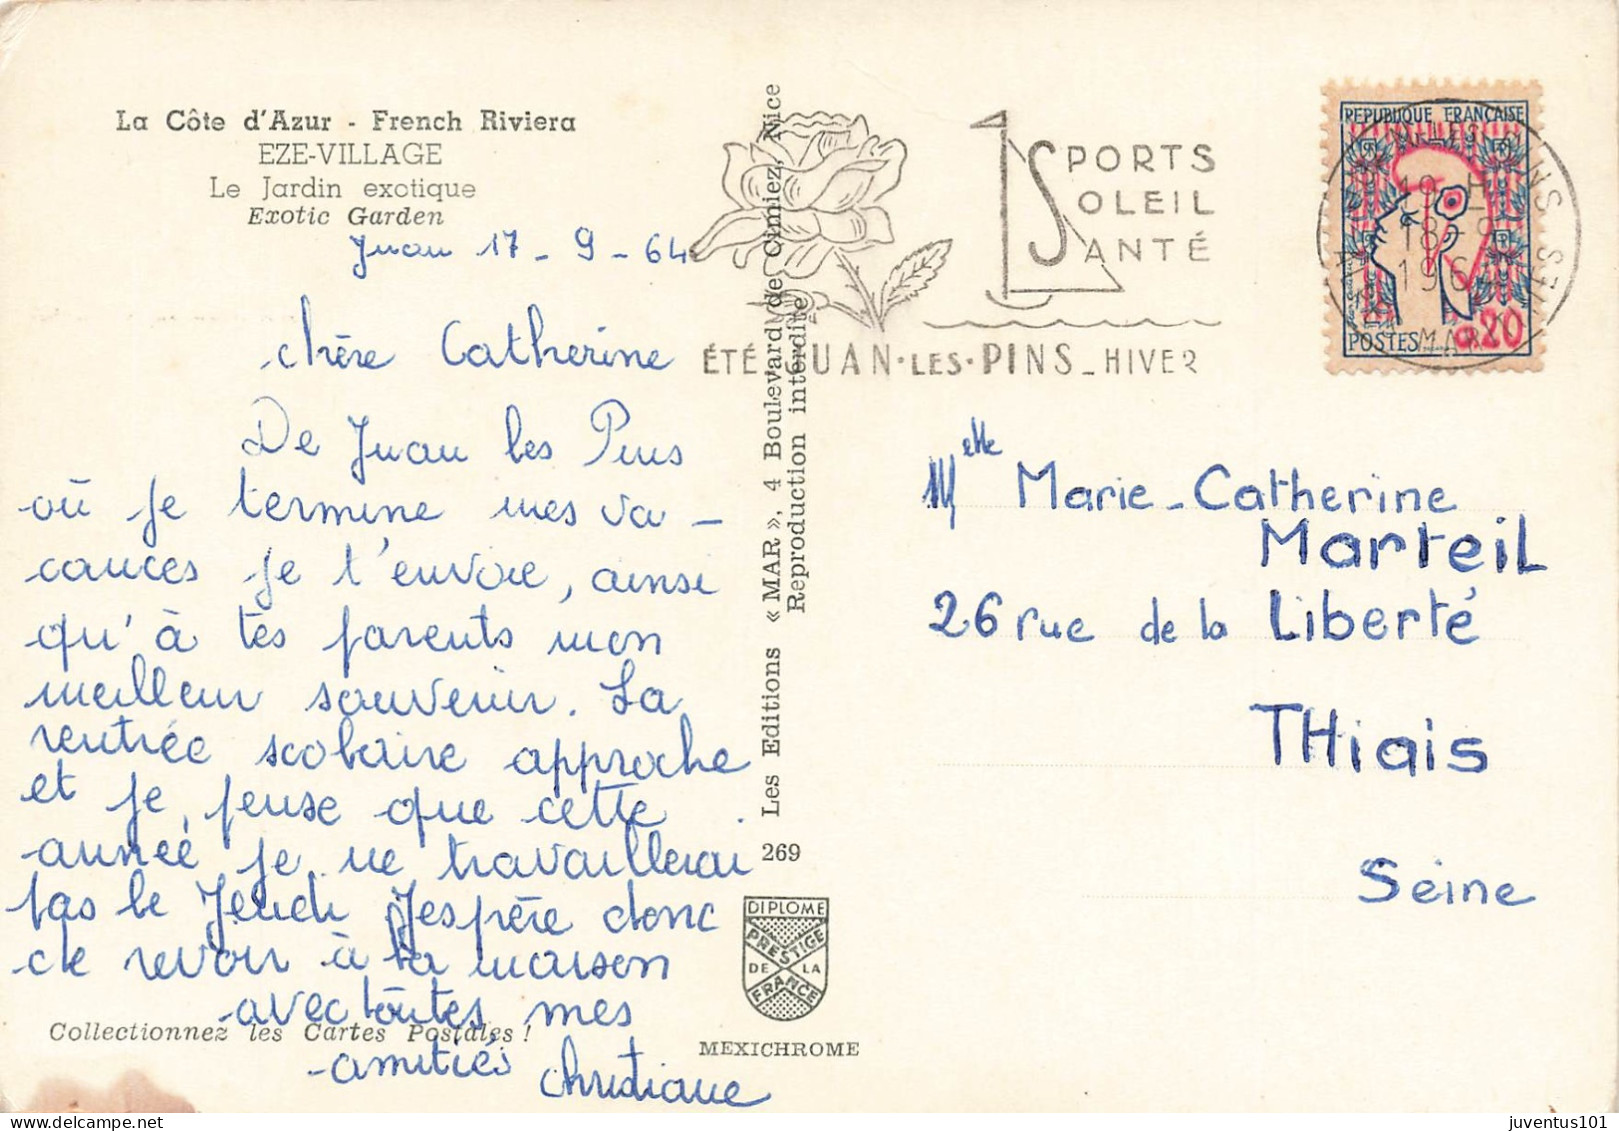 La Côte d'Azur - French Riviera
EZE-VILLAGE
Le Jardin exotique
Exotic Garden
Juan 17 - 9 - 64
chère Catherine
De Juan les Pins
où je termine mes va-
cances je t'envoie, ainsi
qu'à tes parents mon
meilleur souvenir. La
rentrée scolaire approche
et je pense que cette
année je ne travaillerai
pas le Jeudi J'espère donc
te revoir à la maison
avec toutes mes
amitiés Christiane
Collectionnez les Cartes Postales !
Les Editions « MAR », 4 Boulevard de Cimiez, Nice
Reproduction interdite
269
DIPLOME
PRESTIGE
DE LA
FRANCE
MEXICHROME
SPORTS
SOLEIL
SANTÉ
ÉTÉ JUAN·LES·PINS_HIVER
REPUBLIQUE FRANÇAISE
POSTES
0,20
19 H
18-9
1964
Melle Marie-Catherine
Marteil
26 rue de la Liberté
THiais
Seine
juventus101